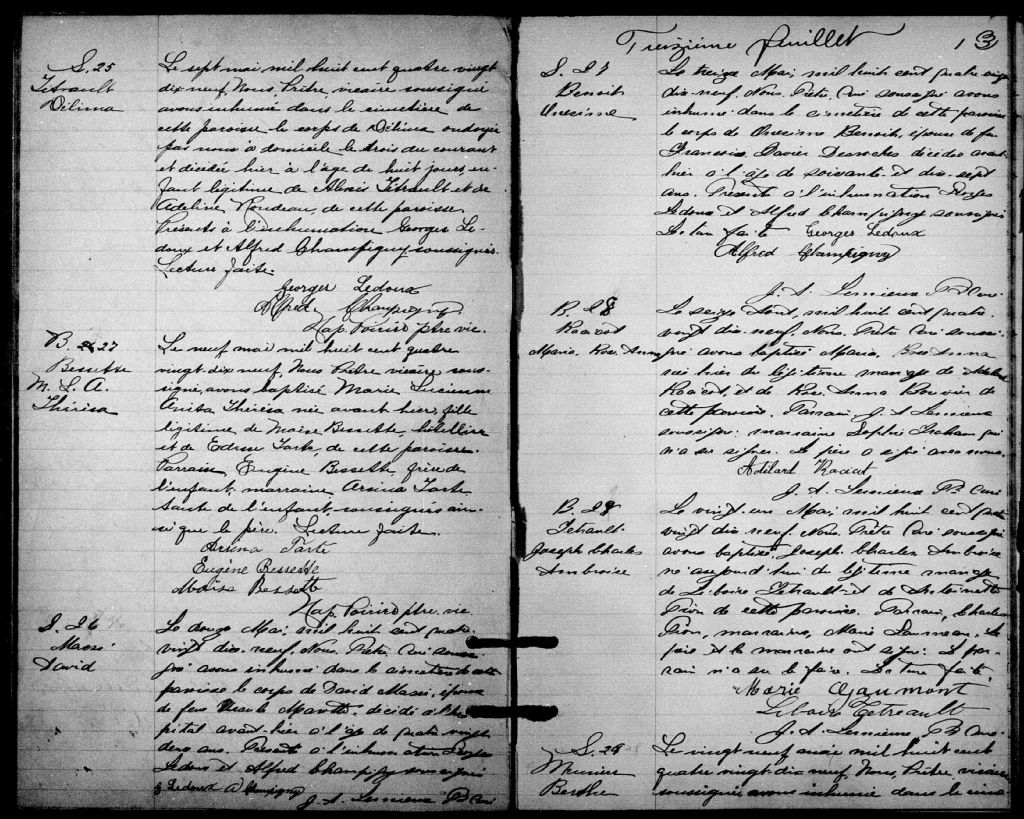 S. 25
Tétrault
Délima
Le sept mai mil huit cent quatre vingt
dix neuf, Nous, Prêtre, vicaire soussigné
avons inhumé dans le cimetière de
cette paroisse le corps de Délima ondoyée
par nous à domicile le trois du courant
et décédée hier à l'âge de huit jours, en-
fant légitime de Alexis Tétrault et de
Adeline Rondeau, de cette paroisse.
Présents à l'inhumation Georges Le-
doux et Alfred Champigny soussignés.
Lecture faite.
Georges Ledoux
Alfred Champigny
Nap. Poirier ptre vic.
B. 27
Bessette
M. L. A.
Thérèsa
Le neuf mai mil huit cent quatre
vingt dix neuf, Nous Prêtre vicaire sous-
signé, avons baptisé Marie Lucienne
Anita Thérèsa née avant hier, fille
légitime de Moïse Bessette, hôtellier
et de Tarte, de cette paroisse.
Parrain, Eugène Bessette frère de
l'enfant, marraine Tarte
tante de l'enfant, soussignés ain-
si que le père. Lecture faite.
Tarte
Eugène Bessette
Moïse Bessette
Nap. Poirier ptre vic
S. 26
Massé
David
Le douze Mai, mil huit cent quatre
vingt dix-neuf, Nous, Prêtre, Curé soussi-
gné avons inhumé dans le cimetière de cette
paroisse le corps de David Massé, époux
de feue décédé à l'hô-
pital avant-hier à l'âge de quatre vingt
deux ans. Présents à l'inhumation Georges
Ledoux et Alfred Champigny soussignés
G Ledoux A Champigny
J. A. Lemieux Ptre Curé
Treizième feuillet 13
S. 27
Benoit
Onésime
Le treize Mai, mil huit cent quatre vingt
dix-neuf, Nous, Prêtre, Curé soussigné avons
inhumé dans le cimetière de cette paroisse
le corps de Onésime Benoit, épouse de feu
François Xavier décédée avant-
hier à l'âge de soixante et dix-sept
ans. Présents à l'inhumation Georges
Ledoux et Alfred Champigny soussignés
Lecture faite Georges Ledoux
Alfred Champigny
J. A. Lemieux Ptre Curé
B. 28
Racicot
Maria, Rose Anna
Le seize mil huit cent quatre-
vingt dix-neuf, Nous, Prêtre Curé soussi-
gné avons baptisé Maria, Rose Anna
née hier du légitime mariage de Adélard
Racicot, et de Rose-Anna de
cette paroisse. Parrain, J. A. Lemieux
soussigné: marraine Sophie Graham qui
n'a su signer. Le père a signé avec nous.
Adélard Racicot
J. A. Lemieux Ptre Curé
B. 29
Tétrault
Joseph Charles
Ambroise
Le vingt-un Mai, mil huit cent quatre
vingt dix-neuf, Nous, Prêtre Curé soussigné
avons baptisé, Joseph Charles Ambroise
né aujourd'hui du légitime mariage
de Liboire Tétrault et de Antoinette
Pion de cette paroisse. Parrain, Charles
Pion, marraine, Marie Le
père et la marraine ont signé: le par-
rain n'a su le faire. Lecture faite.
Marie Gaumont
Liboire Tetreault
J. A. Lemieux Ptre Curé
S. 28
Meunier
Berthe
Le vingt neuf mai mil huit cent
quatre vingt dix neuf, Nous, Prêtre, vicaire
soussigné, avons inhumé dans le cime-